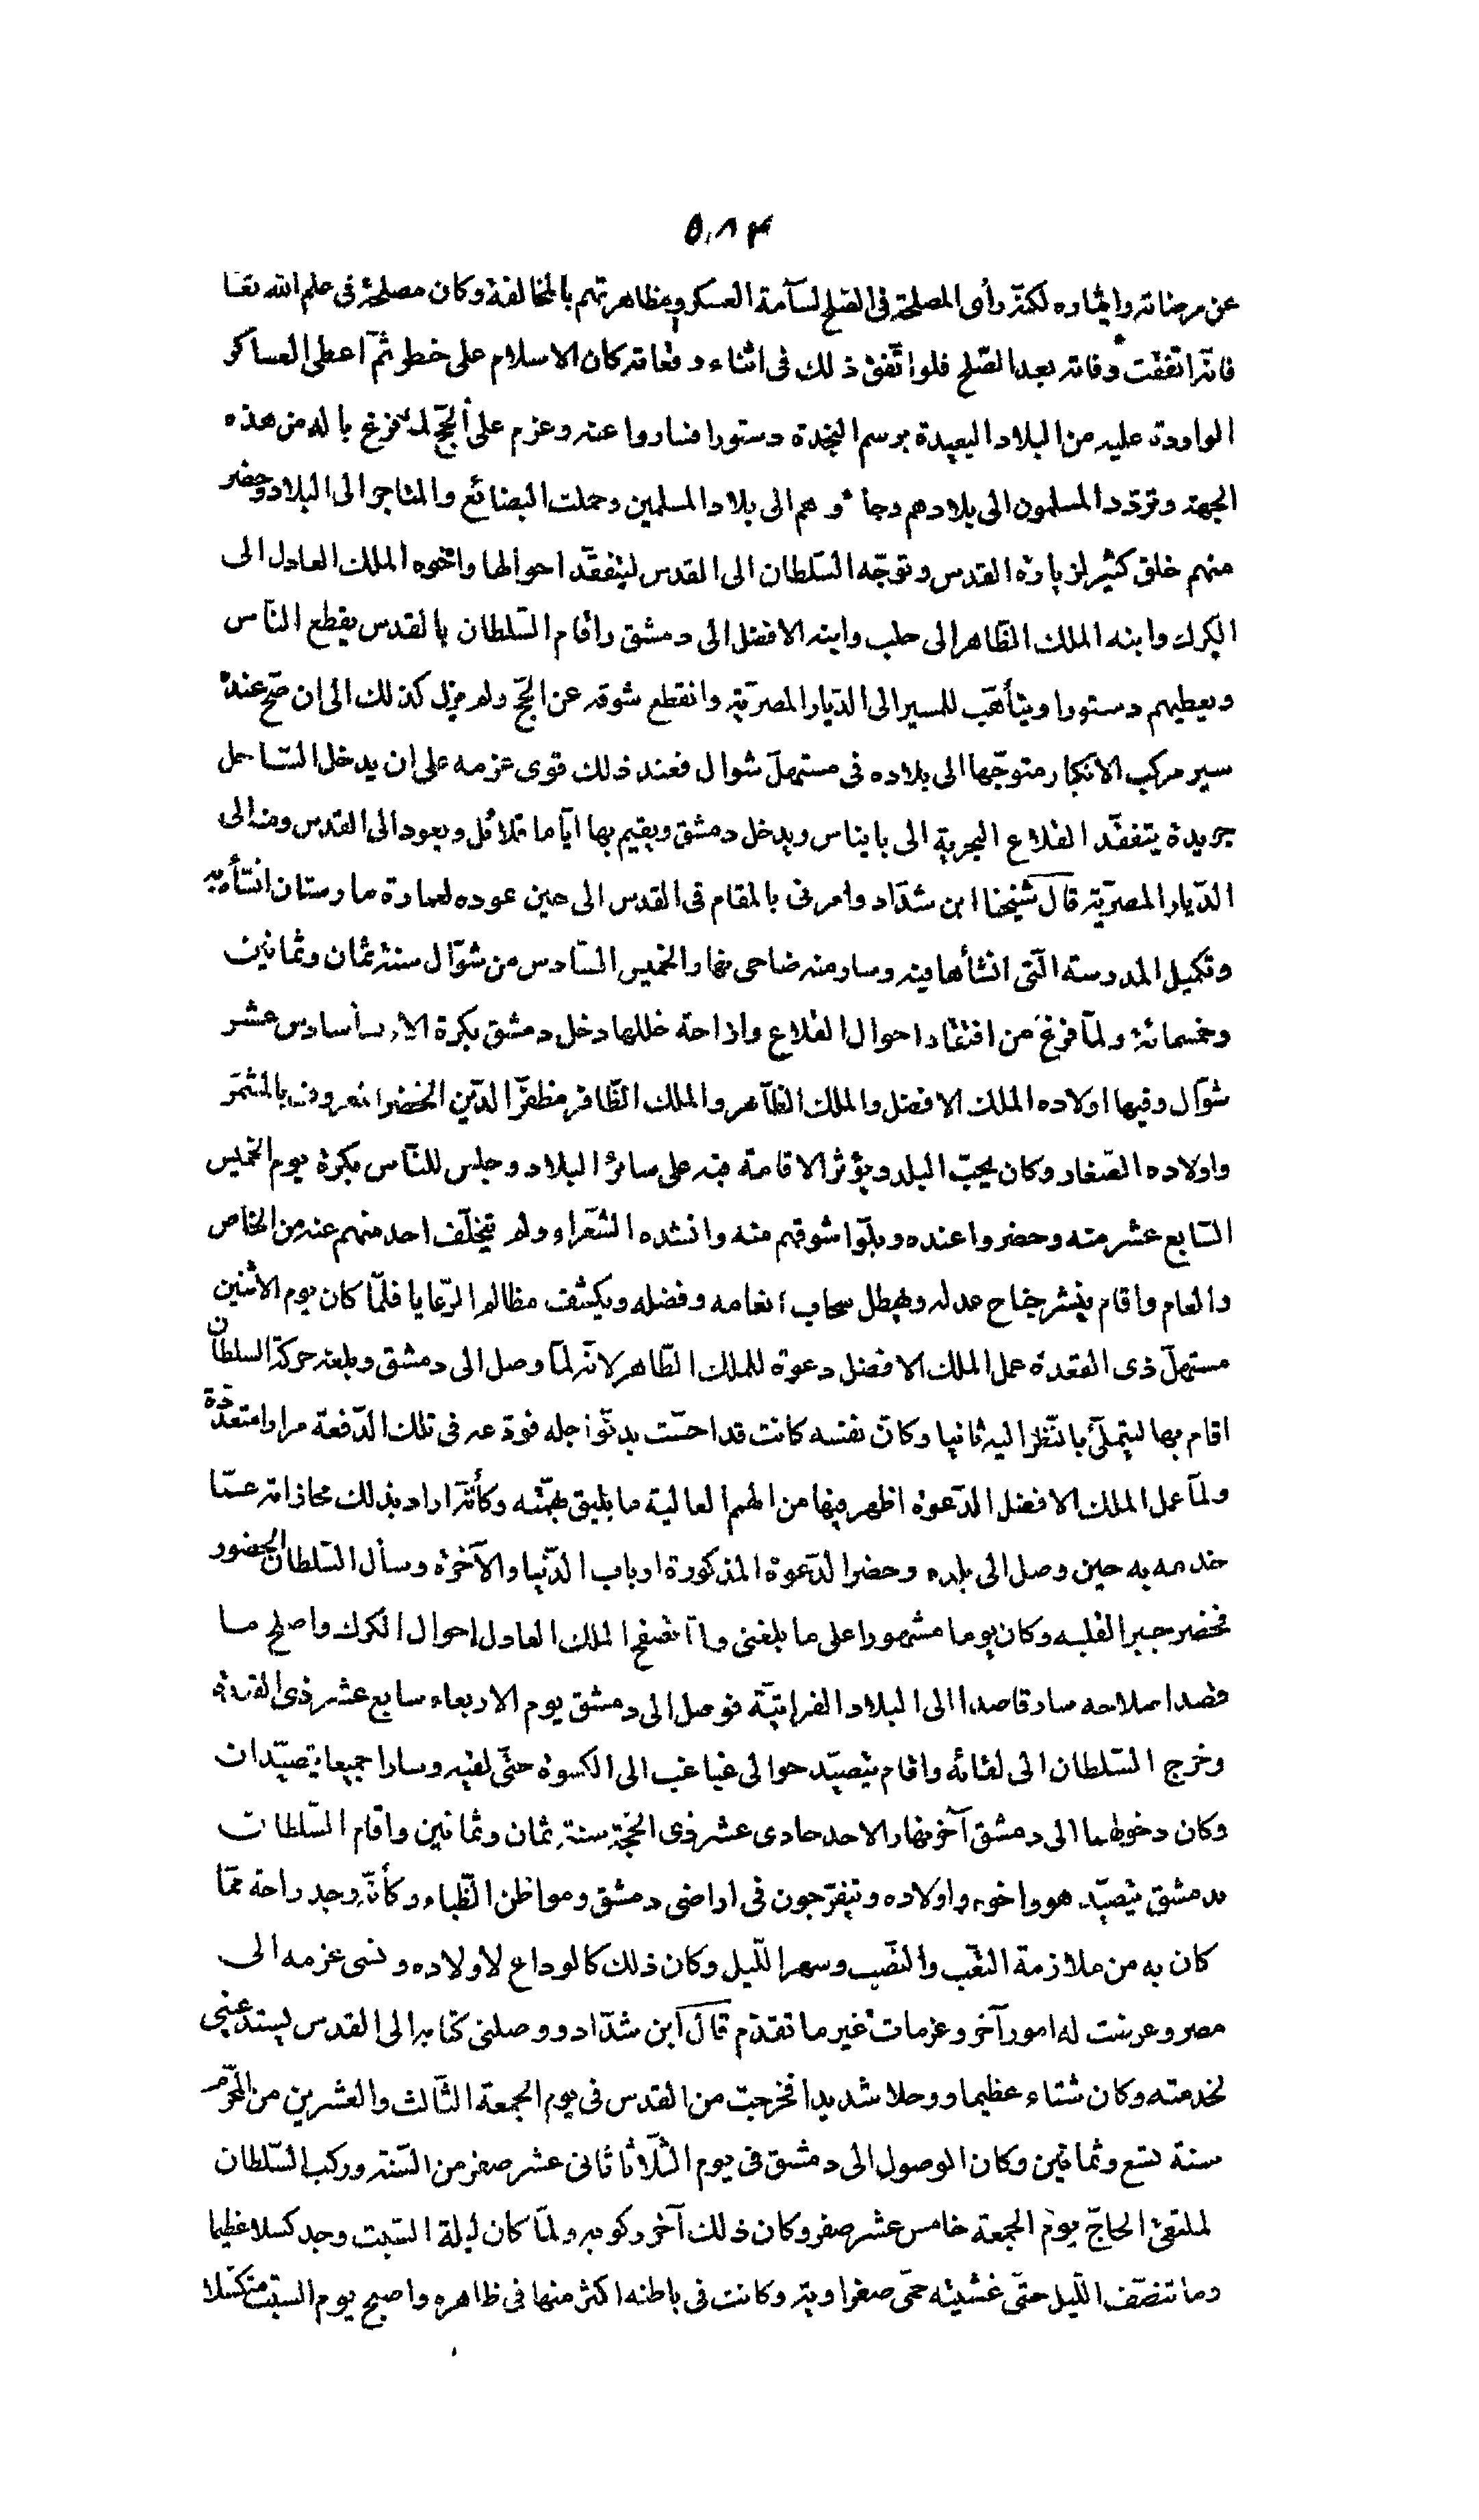 ۵۸۴
عن مرضاته وايثاره لكنّه رأى المصلحة فى الصّلح لسآمة العسكر ومظاهرتهم بالمخالفة وكان مصلحة فى علم الله تعا
فانّه اتّفقت وفاته بعد الصّلح فلو اتّفق ذلك فى اثناء وقعاته كان الاسلام على خطر ثمّ اعطى العساكر
الواردة عليه من البلاد البعيدة برسم النجدة دستورا فساروا عنه وعزم على الحجّ لمّا فرغ باله من هذه
الجهة وتردّد المسلمون الى بلادهم وجاؤهم الى بلاد المسلمين وحملت البضائع والمتاجر الى البلاد وحضر
منهم خلق كثير لزيارة القدس وتوجّه السّلطان الى القدس ليتفقّد احوالها واخوه الملك العادل الى
الكرك وابنه الملك الظّاهر الى حلب وابنه الافضل الى دمشق واقام السّلطان بالقدس يقطع النّاس
ويعطيهم دستورا ويتأهّب للمسير الى الدّيار المصريّة وانقطع شوقه عن الحجّ ولم يزل كذلك الى ان صحّ عنده
سير مركب الانكتار متوجّها الى بلاده فى مستهلّ شوال فعند ذلك قوى عزمه على ان يدخل السّاحل
جريدة يتفقّد القلاع البحرية الى بانياس ويدخل دمشق ويقيم بها ايّاما قلائل ويعود الى القدس ومنه الى
الدّيار المصريّة قال شيخنا ابن شدّاد وامرنى بالمقام فى القدس الى حين عوده لعمارة مارستان انشأه به
وتكميل المدرسة الّتى انشأها فيه وسار منه ضاحى نهار الخميس السّادس من شوّال سنة ثمان وثمانين
وخمسمائة ولمّا فرغ من افتقاد احوال القلاع وازاحة خللها دخل دمشق بكرة الاربعا سادس عشر
شوّال وفيها اولاده الملك الافضل والملك الظّاهر والملك الظّافر مظفّر الدّين الخضر المعروف بالمشمّر
واولاده الصّغار وكان يحبّ البلد ويؤثر الاقامة فيه على سائر البلاد وجلس للنّاس بكرة يوم الخميس
السّابع عشر منه وحضروا عنده وبلّوا شوقهم منه وانشده الشّعراء ولم يتخلّف احد منهم عنه من الخاص
والعام واقام ينشر جناح عدله ويهطل سحاب انعامه وفضله ويكشف مظالم الرّعايا فلمّا كان يوم الاثنين
مستهلّ ذى القعدة عمل الملك الافضل دعوة للملك الظّاهر لانّه لمّا وصل الى دمشق وبلغه حركة السلطان
اقام بها ليتملّى بالنّظر اليه ثانيا وكانّ نفسه كانت قد احسّت بدنوّ اجله فودّعه فى تلك الدّفعة مرارا متعدّدة
ولمّا عمل الملك الافضل الدّعوة اظهر فيها من الهمم العالية ما يليق بهمّته وكأنّه اراد بذلك مجازاته عمّا
خدمه به حين وصل الى بلده وحضر الدّعوة المذكورة ارباب الدّنيا والآخرة وسأل السّلطان الحضور
فحضر جبرا لقلبه وكان يوما مشهورا على ما بلغنى ولمّا تصفّح الملك العادل احوال الكرك واصلح ما
قصد اصلاحه سار قاصدا الى البلاد الفراتيّة فوصل الى دمشق يوم الاربعاء سابع عشر ذى القعدة
وخرج السّلطان الى لقائه واقام يتصيّد حوالى غباغب الى الكسوة حتّى لقيه وسارا جميعا يتصيّدان
وكان دخولهما الى دمشق آخر نهار الاحد حادى عشر ذى الحجّة سنة ثمان وثمانين واقام السّلطان
بدمشق يتصيّد هو واخوه واولاده ويتفرّجون فى اراضى دمشق ومواطن الظّباء وكأنّه وجد راحة ممّا
كان به من ملازمة التّعب والنّصب وسهر اللّيل وكان ذلك كالوداع لاولاده ونسى عزمه الى
مصر وعرضت له امور آخر وعزمات غير ما تقدّم قال ابن شدّاد ووصلنى كتابه الى القدس يستدعينى
لخدمته وكان شتاء عظيما ووحلا شديدا فخرجت من القدس فى يوم الجمعة الثّالث والعشرين من المحرّم
سنة تسع وثمانين وكان الوصول الى دمشق فى يوم الثّلاثا ثانى عشر صفر من السّنة وركب السّلطان
لملتقى الحاجّ يوم الجمعة خامس عشر صفر وكان ذلك آخر ركوبه ولمّا كان ليلة السّبت وجد كسلا عظيما
وما تنصّف اللّيل حتّى غشيته حمّى صفراويّة وكانت فى باطنه اكثر منها فى ظاهره واصبح يوم السّبت متكسّلا